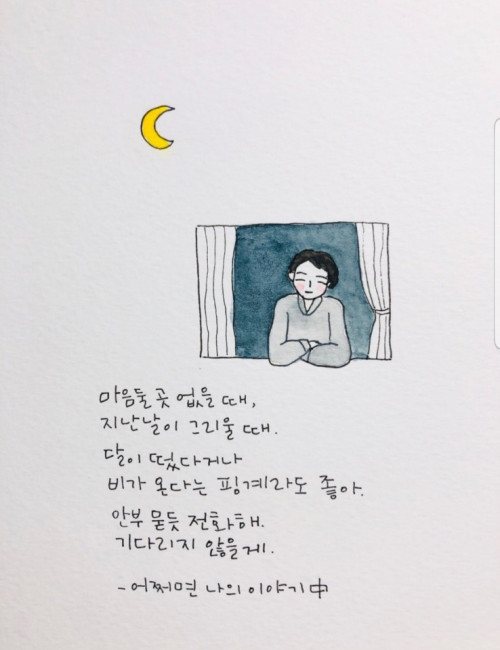 마음둘 곳 없을 때,
지난날이 그리울 때.
달이 떴다거나
비가 온다는 핑계라도 좋아.
안부 묻듯 전화해.
기다리지 않을게.
- 어쩌면 나의 이야기 中